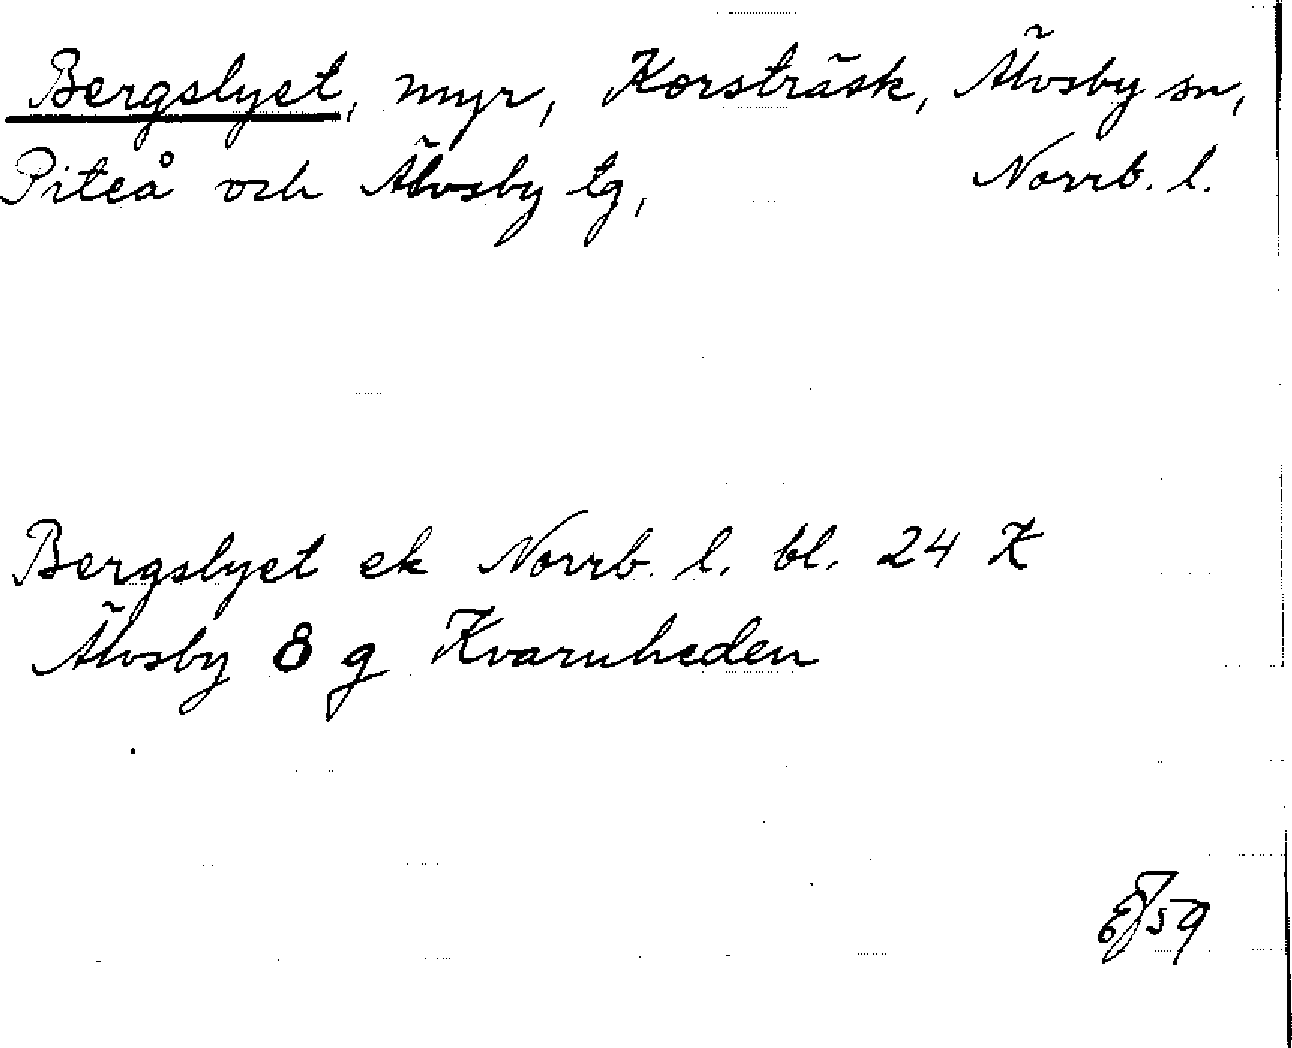 Bergslyet, myr, Korsträsk, Älvsby sn,
Piteå och Älvsby tg, Norrb. l.
Bergslyet ek Norrb. l. bl. 24 K
Älvsby 8 g Kvarnheden
59